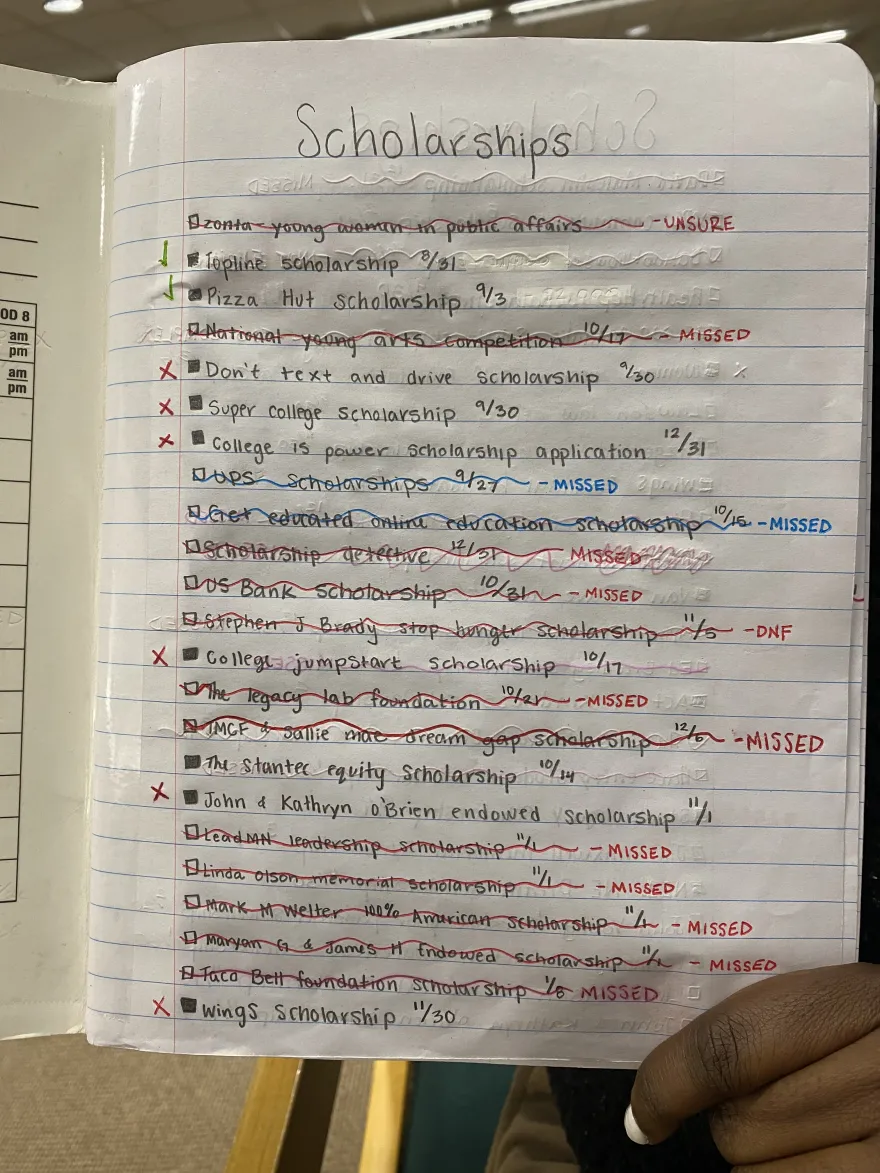 OD 8
am
pm
am
pm
Scholarships
zonta young woman in public affairs - UNSURE
Topline scholarship 8/31
Pizza Hut scholarship 9/3
National young arts competition 10/17 - MISSED
Don't text and drive scholarship 9/30
Super college scholarship 9/30
College is power scholarship application 12/31
UPS scholarships 9/27 - MISSED
Get educated online education scholarship 10/15 - MISSED
Scholarship detective 12/31 MISSED
US Bank scholarship 10/31 - MISSED
Stephen J Brady stop hunger scholarship 11/5 - DNF
College jumpstart scholarship 10/17
The legacy lab foundation 10/21 - MISSED
TMCF & Sallie mae dream gap scholarship - MISSED
The Stantec equity scholarship 10/14
John & Kathryn O'Brien endowed scholarship 11/1
LeadMN leadership scholarship 11/1 - MISSED
Linda olson memorial scholarship 11/1 - MISSED
Mark M Welter 100% American scholarship 11/1 - MISSED
Maryam G & James H Endowed scholarship 11/1 - MISSED
Taco Bell foundation scholarship MISSED
Wings scholarship 11/30